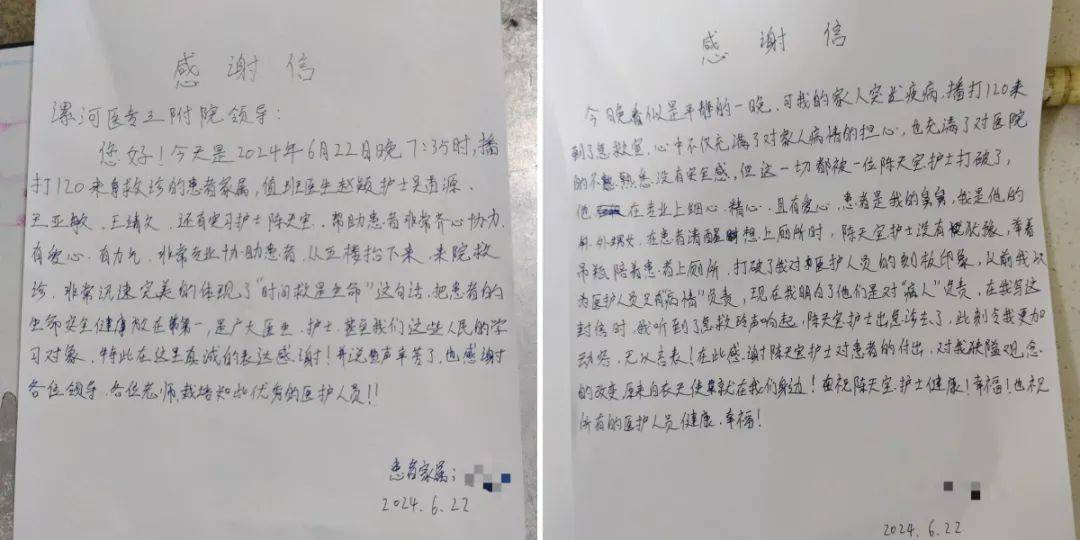 感谢信
漯河医专三附院领导:
您好!今天是2024年6月22日晚7:35时,播
打120来自救诊的患者家属,值班医生赵颖护士吴清源、
王亚敏、王靖文、还有实习护士陈天宝、帮助患者非常齐心协力
有爱心、有力气、非常专业协助患者,从五楼抬下来,来院救
诊,非常迅速完美的体现了"时间就是生命"这句话,把患者的
生命安全健康放在第一,是广大医生、护士、甚至我们这些人民的学
习对象,特此在这里真诚的表达感谢!并说声辛苦了,也感谢
各位领导、各位老师,栽培如此优秀的医护人员!!
患者家属:
2024.6.22
感谢信
今晚看似是平静的一晚、可我的家人突发疾病,播打120来
到了急救室,心中不仅充满了对家人病情的担心,也充满了对医院
的不熟悉没有安全感,但这一切都被一位陈天宝护士打破了,
他在专业上细心、精心、且有爱心,患者是我的舅舅,我是他的
外甥女,在患者清醒时想上厕所时,陈天宝护士没有犹豫,举着
吊瓶陪着患者上厕所,打破了我对医护人员的刻板印象,从前我以
为医护人员只有"病情"负责,现在我明白了他们是对"病人"负责,在我写这
封信时,我听到了急救铃声响起,陈天宝护士出急诊去了,此刻令我更加
动容,无以言表!在此感谢陈天宝护士对患者的付出,对我狭隘观念
的改变原来白衣天使就在我们身边!在祝陈天宝护士健康!幸福!也祝
所有的医护人员健康、幸福!
2024.6.22